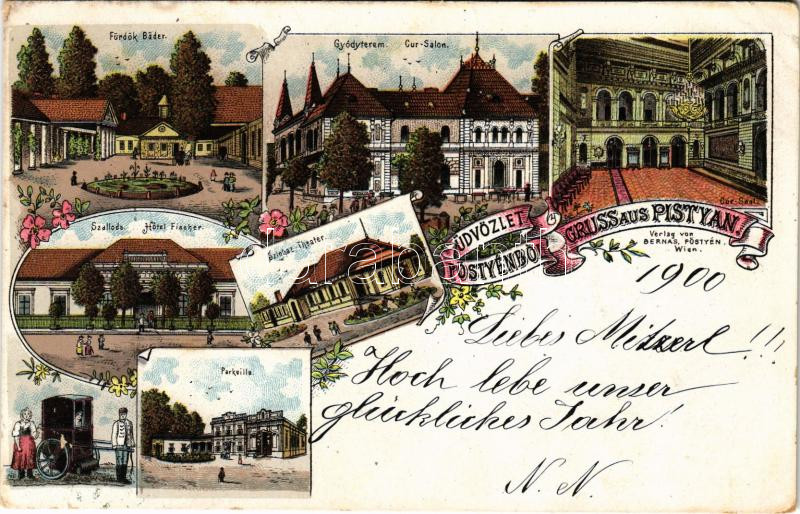 Fürdők Bäder.
Gyódyterem. Cur-Salon.
Cur-Saal.
Szalloda. Hôtel Fischer.
Szinhaz. Theater.
ÜDVÖZLET
PÖSTYÉNBŐL
GRUSS AUS PISTYAN.
Verlag von
BERNAS, PÖSTYÉN.
Wien.
Parkvilla.
1900
Liebes Mitzerl!!!
Hoch lebe unser
glückliches Jahr!
N. N.